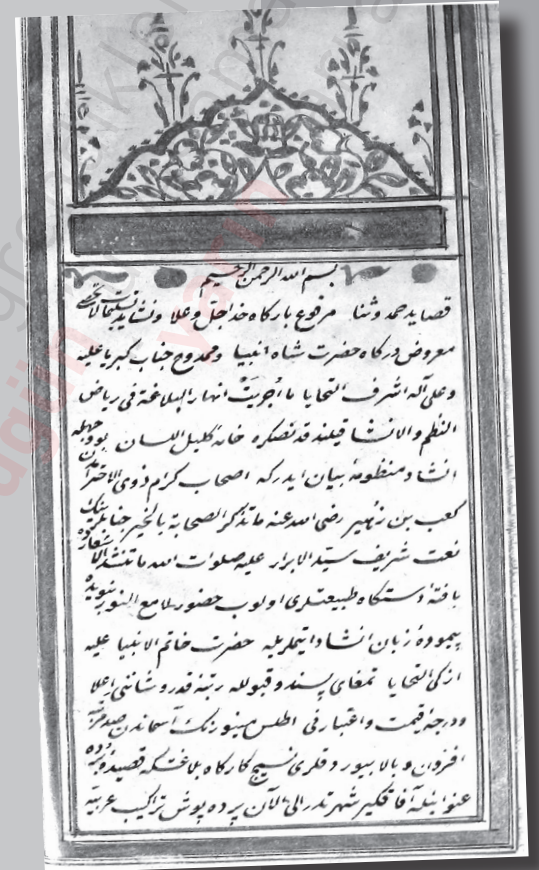 بسم الله الرحمن الرحيم
قصايد حمد وثنا مرفوع باركاه خدا جل وعلا ونشايد
معروض دركاه حضرت شاه انبيا وممدوح جناب كبريا عليه
وعلى آله اشرف التحايا ما اجريت انهار البلاغة فى رياض
النظم والانشا قيلندقد نصكره خامۀ كليل اللسان بو وجهله
انشاد منظومۀ بيان ايدركه اصحاب كرام ذوى الاحترامدن
كعب بن زهير رضى الله عنه ما تذكر الصحابة بالخير جنابلرينك
نعت شريف سيد الابرار عليه صلوات الله ما تنشد الاشعار
بافتۀ دستكاه طبيعتلرى اولوب حضور لامع النور نبويده
پيمودۀ زبان انشاد ايتملريله حضرت خاتم الانبيا عليه
ازكى التحايا تمغاى پسند وقبولله رتبۀ قدر وشاننى اعلا
ودرجۀ قيمت واعتبارنى اطلس مينو رنك آسماندن
افزون وبالا بيوردقلرى نسيج كاركاه بلاغتكه قصيدۀ برده
عنوانيله آفاقكير شهرتدر الى الآن پرده پوش تراكيب عربيه